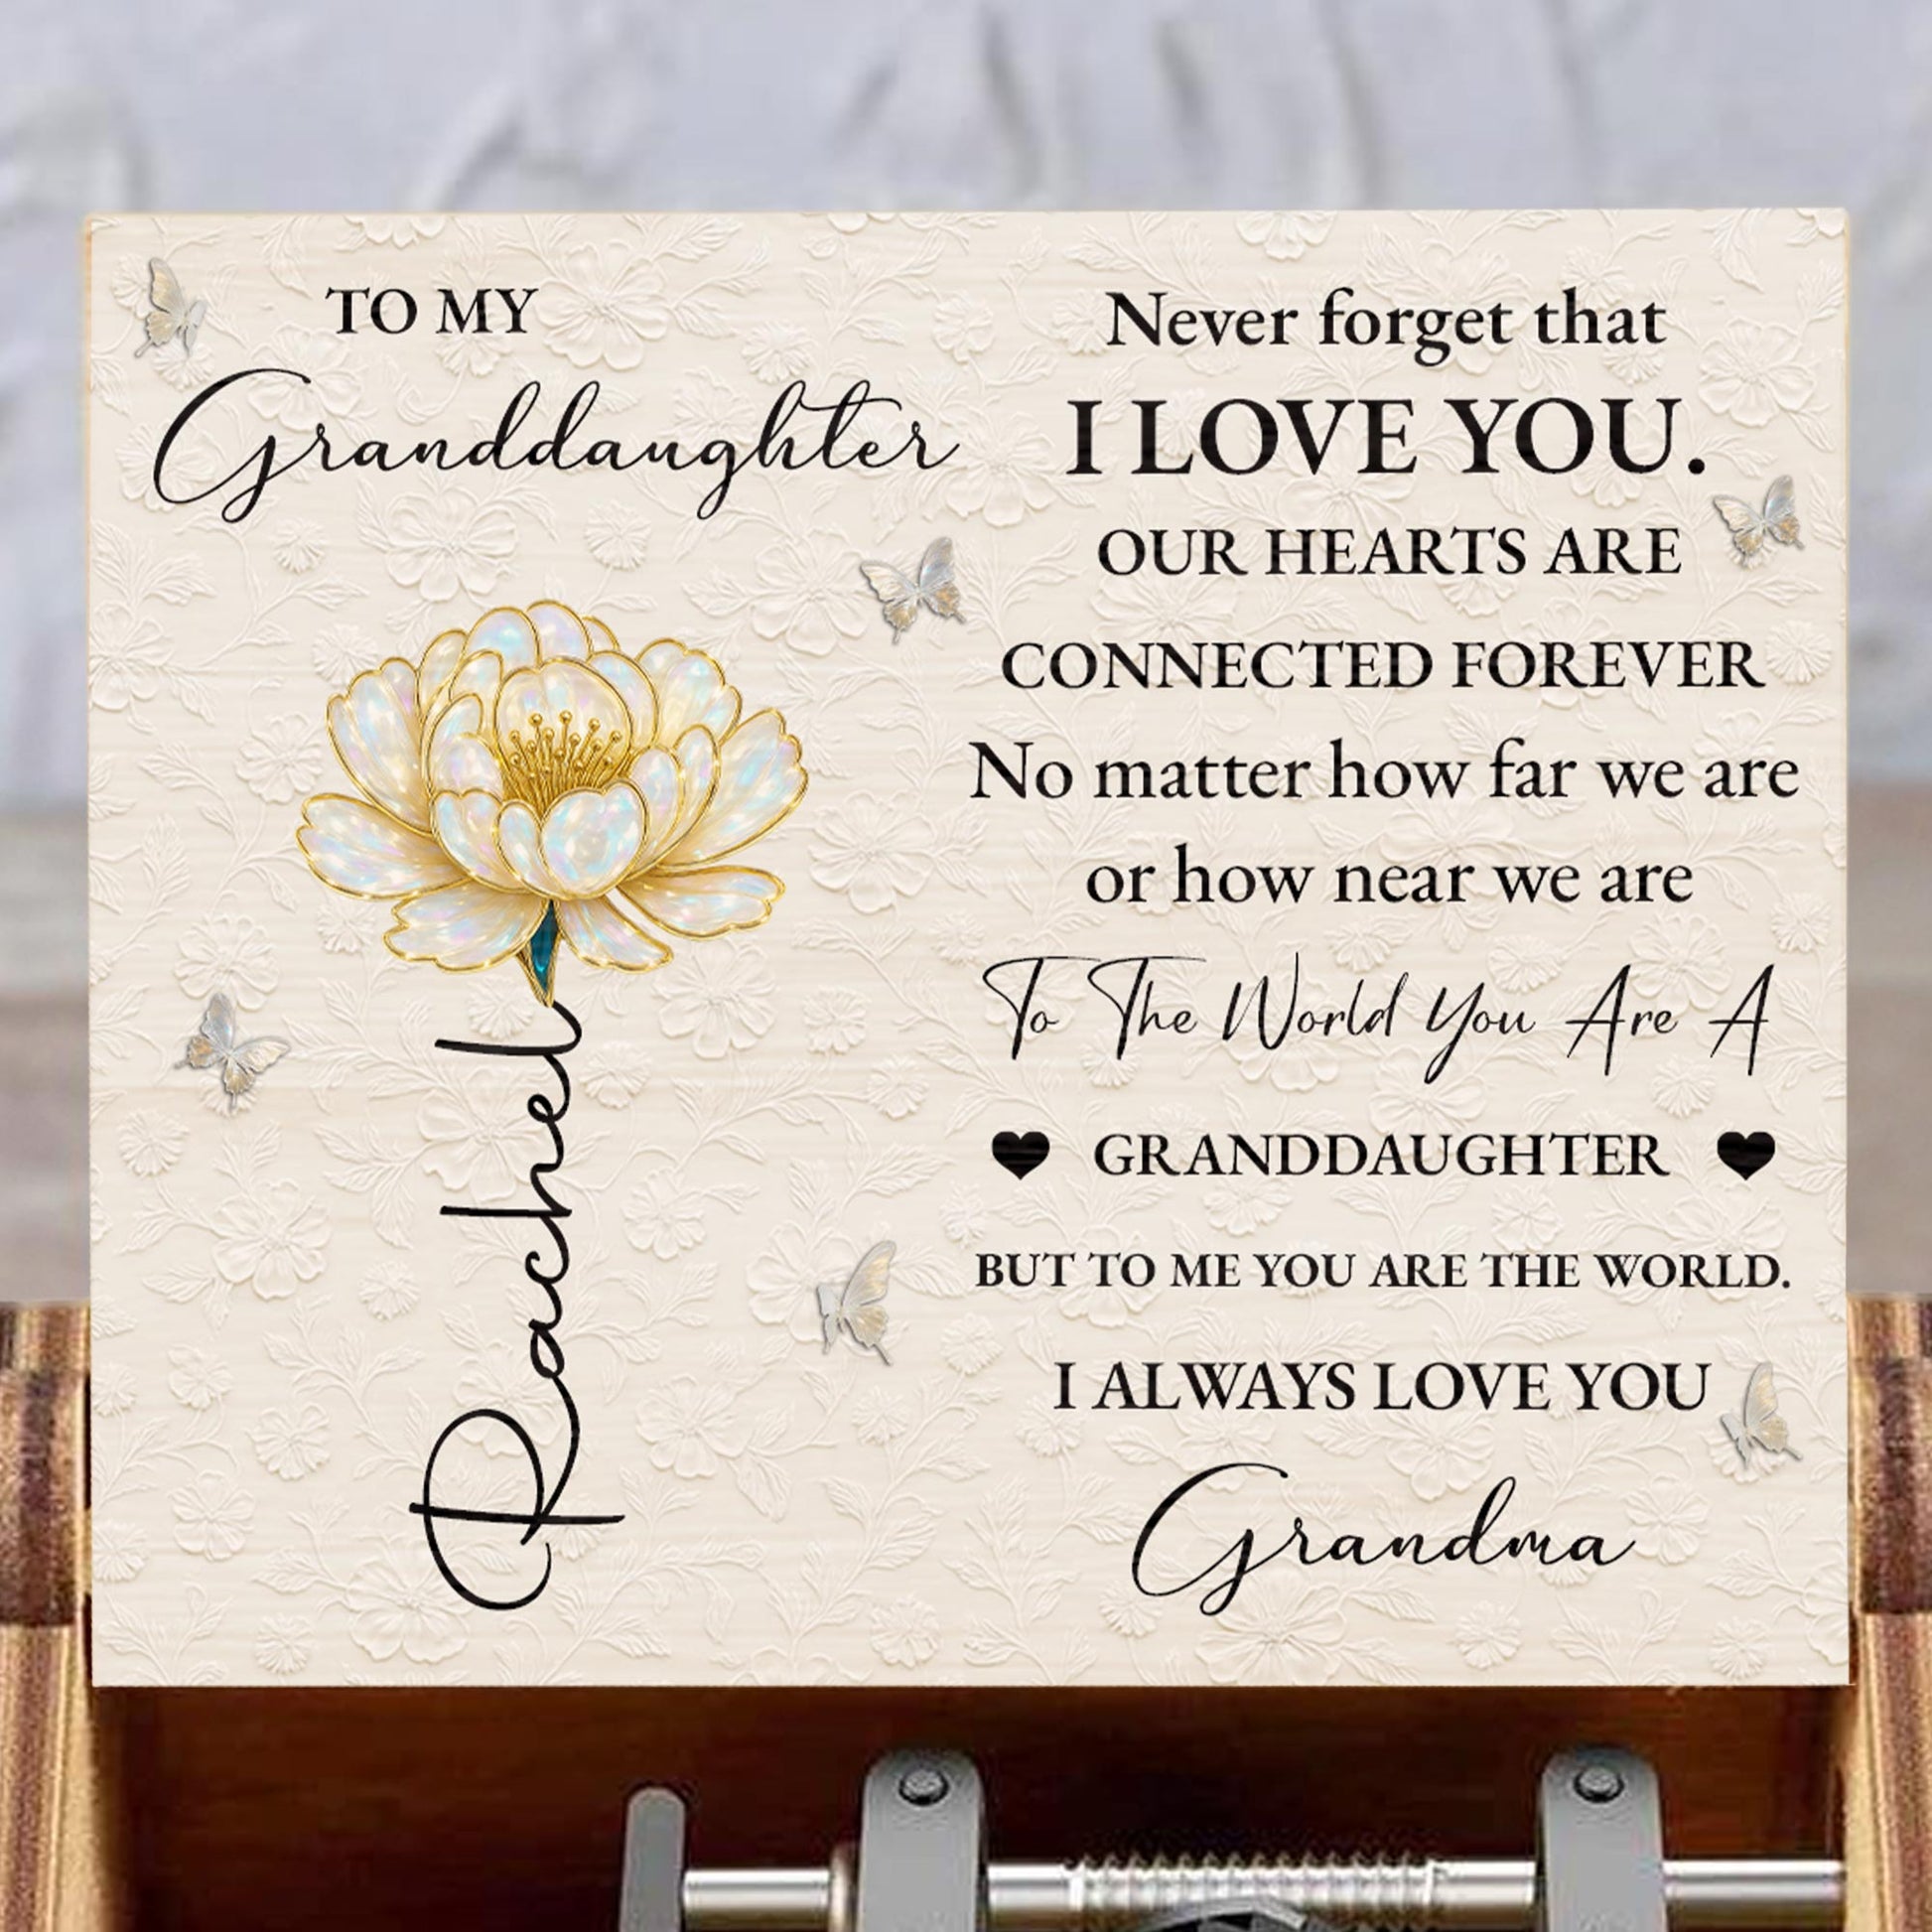 TO MY
Granddaughter
Rachel
Never forget that
I LOVE YOU.
OUR HEARTS ARE
CONNECTED FOREVER
No matter how far we are
or how near we are
To The World You Are A
GRANDDAUGHTER
BUT TO ME YOU ARE THE WORLD.
I ALWAYS LOVE YOU
Grandma